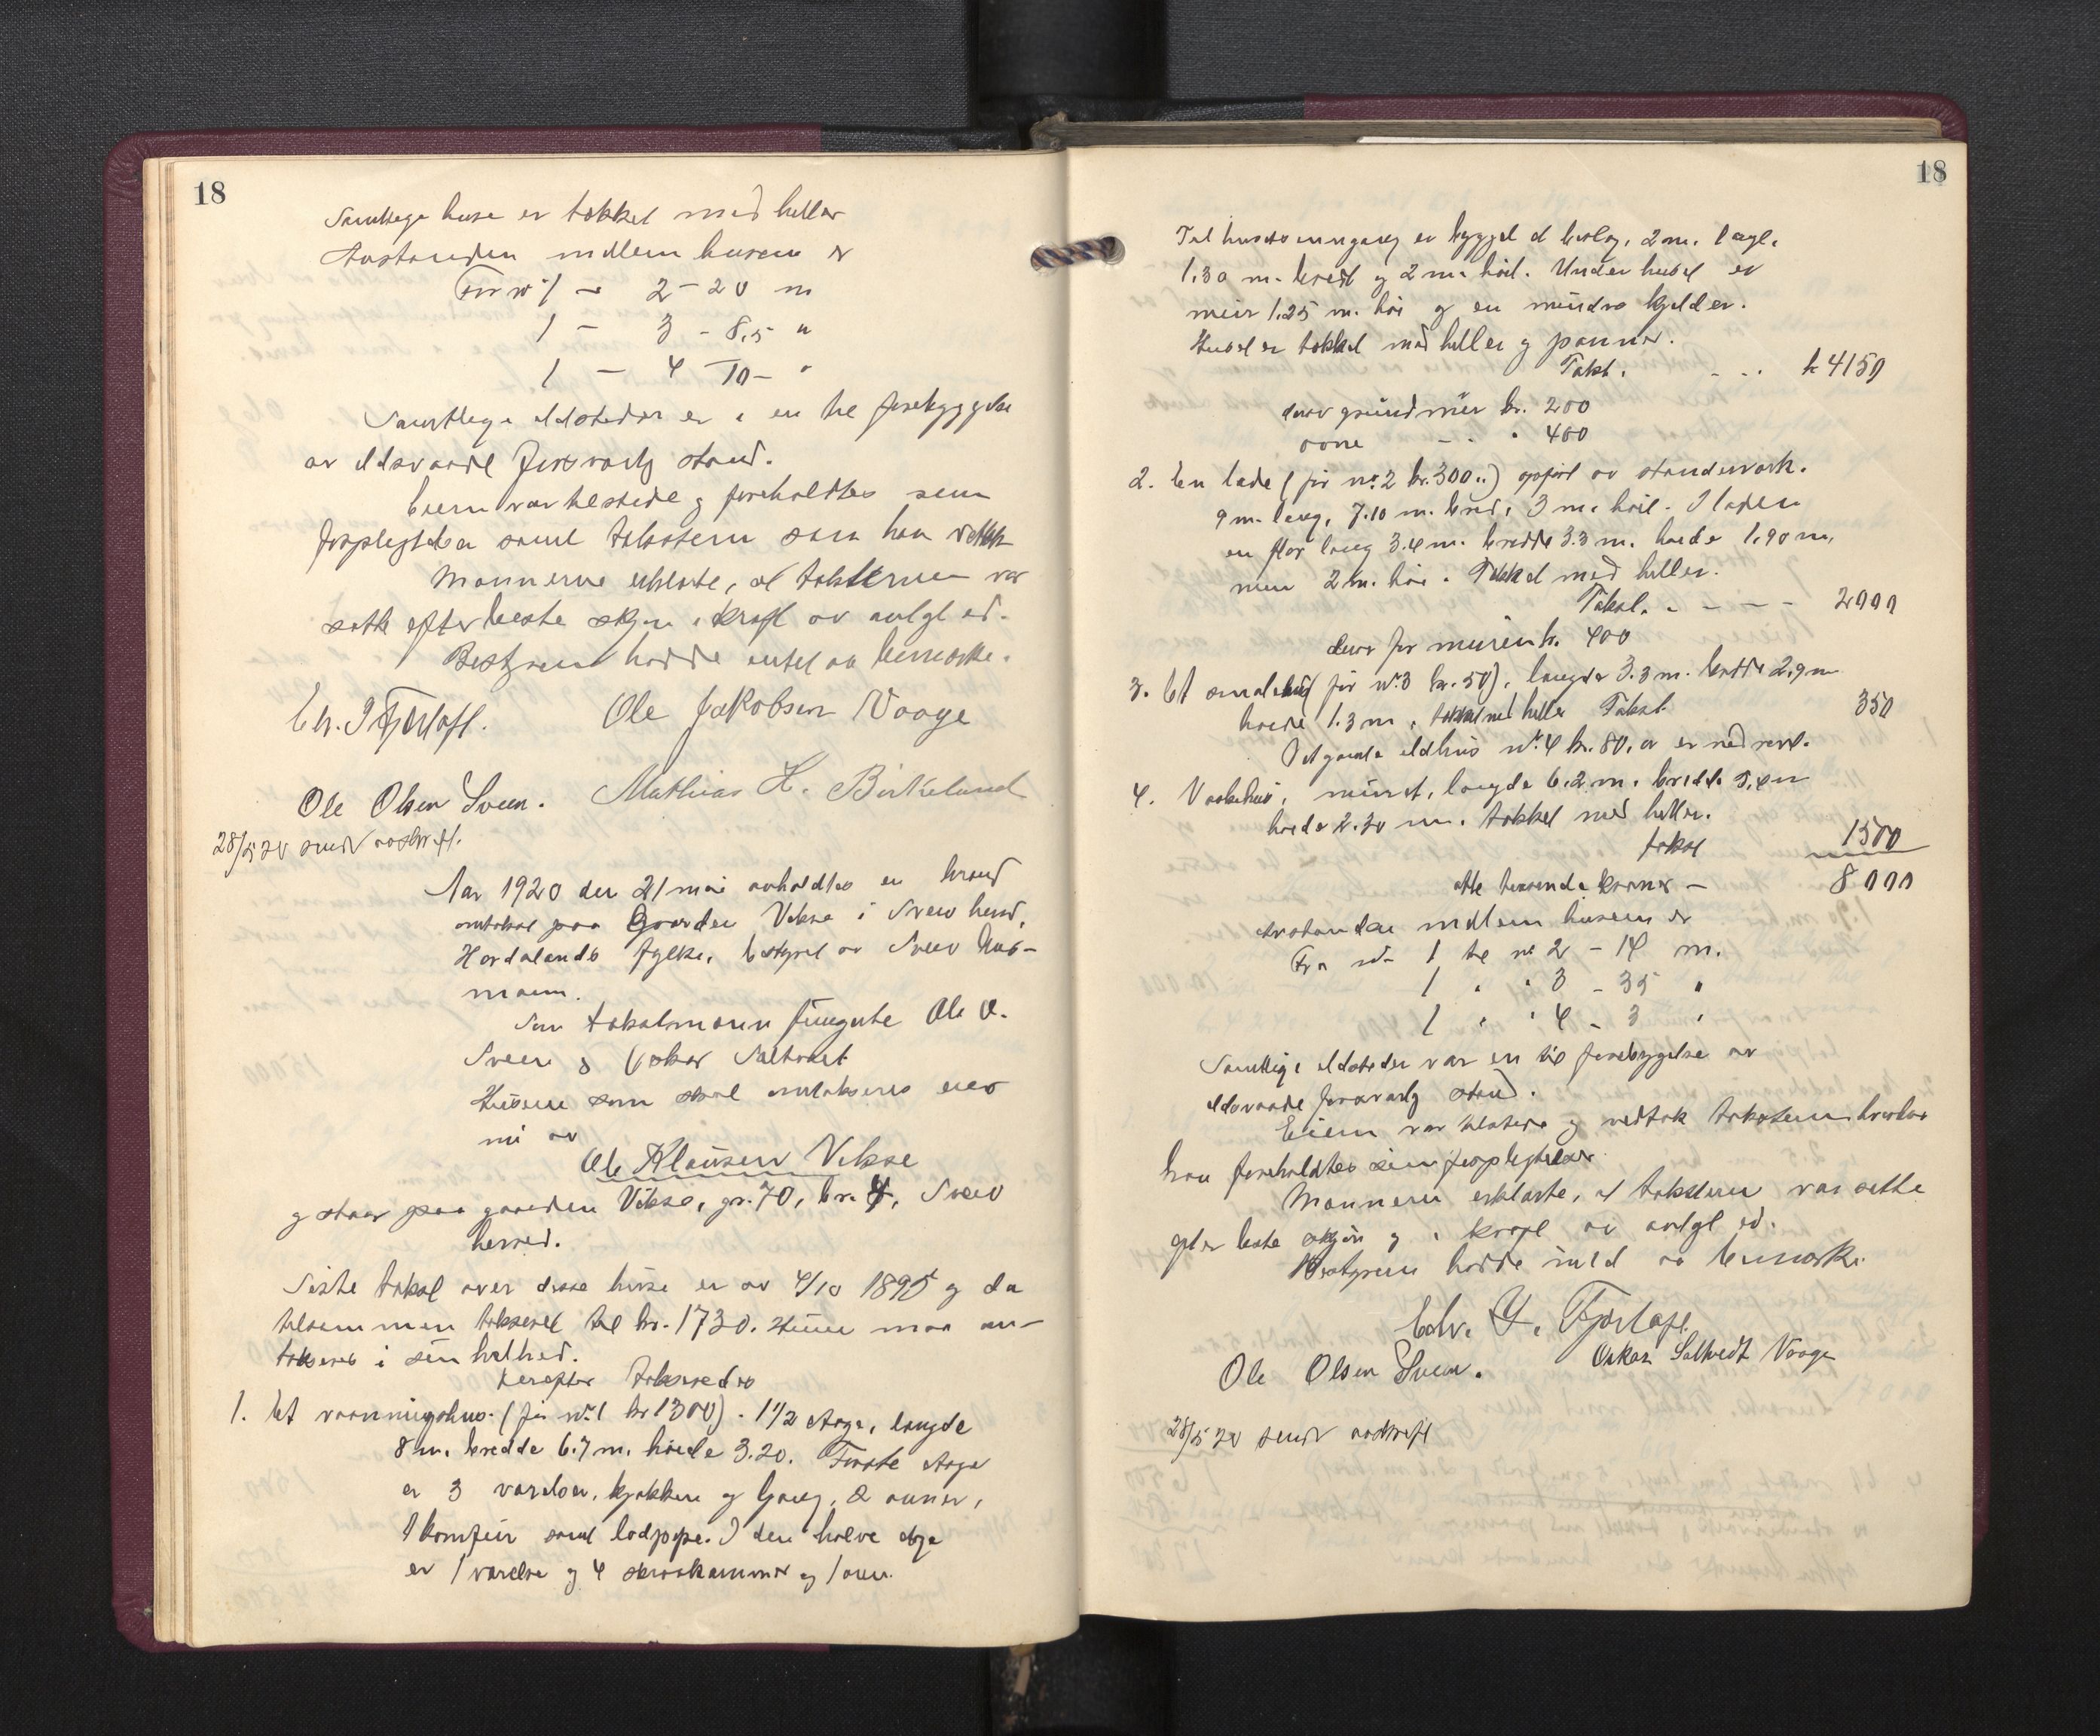 18
Samtlege huse er tækket med heller
Avstanden mellem husene er
Fra nr 1 - 2 - 20 m
1 - 3 - 8,5 "
1 - 4 - 10 - "
Samtlege ildsteder er i en tre forebyggelse
av ildsvaade forsvarlig stand.
Eieren var tilstede og foreholdtes sine
forpligtelser samt taksten som han vedtok
Mannerne erklærte, at taksterne var
satte efter beste skjøn i kraft av avlagt ed.
Bestyreren hadde intet at bemerke.
Chr. I Fjortoft. Ole Jakobsen Vaage
Ole Olsen Sveen. Mathias H. Birkeland
28/5 20 sendt avskrift.
Aar 1920 den 21 mai avholdtes en brand
omtakst paa Gaarden Vikse i Sveio herred,
Hordalands fylke, bestyret av Sveio lens-
mann.
Som takstmann fungerte Ole O.
Sveen og Oskar Saltvedt
Husene som skal omtakseres eies
nu av
Ole Klausen Vikse
og staar paa gaarden Vikse, gr. 70, br. 4, Sveio
herred.
Siste takst over disse huse er av 4/10 1895 og da
tilsammen taksert til kr. 1730. Husene maa om-
takseres i sin helhed.
Herefter takseredes
1. Et vaaningshus (før nr. 1 kr 1300) . 1 1/2 etage, længde
8 m. bredde 6.7 m. høide 3.20. Første etage
er 3 værelser, kjøkken og Gang, 2 ovner,
1 komfur samt lodpipe. I den halve etage
er 1 værelse og 4 skraakammer og 1 ovn.
18
Til husets inngang er bygget et bislag, 2 m. langt,
1.30 m. bredt og 2 m. høit. Under huset er
mur 1.25 m. høi og en mindre kjelder.
Huset er tækket med heller og panner.
Takst. - - . kr 4150
derav grundmur kr. 200
ovne - - " 400
2. En lade (før nr. 2 kr. 300..) opført av stenderverk.
9 m. lang, 7.10 m. bred, 3 m. høit. I laden
en flor lang 3.4 m. bredde 3.3 m. høide 1.90 m,
mur 2 m. høi. Tækket med heller.
Takst. - - - - 2000
derav for muren kr. 400
3. Et smalehus (før nr. 3 kr. 50), længde 3.3 m. bredde 2.9 m
høide 1.3 m, tækket med heller Takst 350
Det gamle eldhus nr. 4 kr. 80, er nedrevet.
4. Vaskehus, muret, længde 6.2 m. bredde 5.4 m
høide 2.20 m. tækket med heller.
takst 1500
otte tusende kroner - 8000
Avstanden mellem husene er
Fra nr 1 til nr 2 - 14 m.
1 " " 3 - 35 "
1 " " 4 - 3 "
Samtlige ildsteder var en til forebygelse av
ildsvaade forsvarlig stand.
Eieren var tilstede og vedtok taksten hvorhos
han foreholdtes sine forpligtelser.
Mannerne erklærte, at taksterne var satte
efter beste skjøn og i kraft av avlagt ed.
Bestyreren hadde intet at bemerke.
Edv. Y. Fjortoft.
Ole Olsen Sveen. Oskar Saltvedt Vaage
28/5 20 sendt avskrift